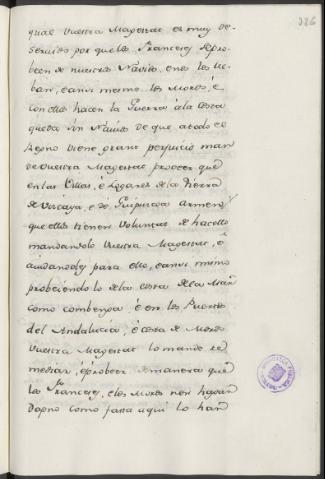 326
qual Vuestra Magestat es muy de-
servido por que los Franceses se pro-
been de nuestros Navios, e nos los lle-
ban, e ansi mismo los Moros, é
con ellos hacen la Guerra, á la costa
queda sin Navios de que a todo el
Regno viene grant perjuicio man-
de Vuestra Magestat proveer que
en las Villas, e Logares de la tierra
de Vizcaya, e de Guipuzcoa armen
que ellos tienen voluntad de hacello
mandandolo Vuestra Magestat, é
aiudandoles para ello, e ansi mismo
probeiendo lo de la costa de la Mar
como combenga é en los Puertos
del Andalucia, é costa de Moros
Vuestra Magestat lo mande re-
mediar, é probeer de manera que
los Franceses, e los Moros non hagan
Dapno como fasta aqui lo han